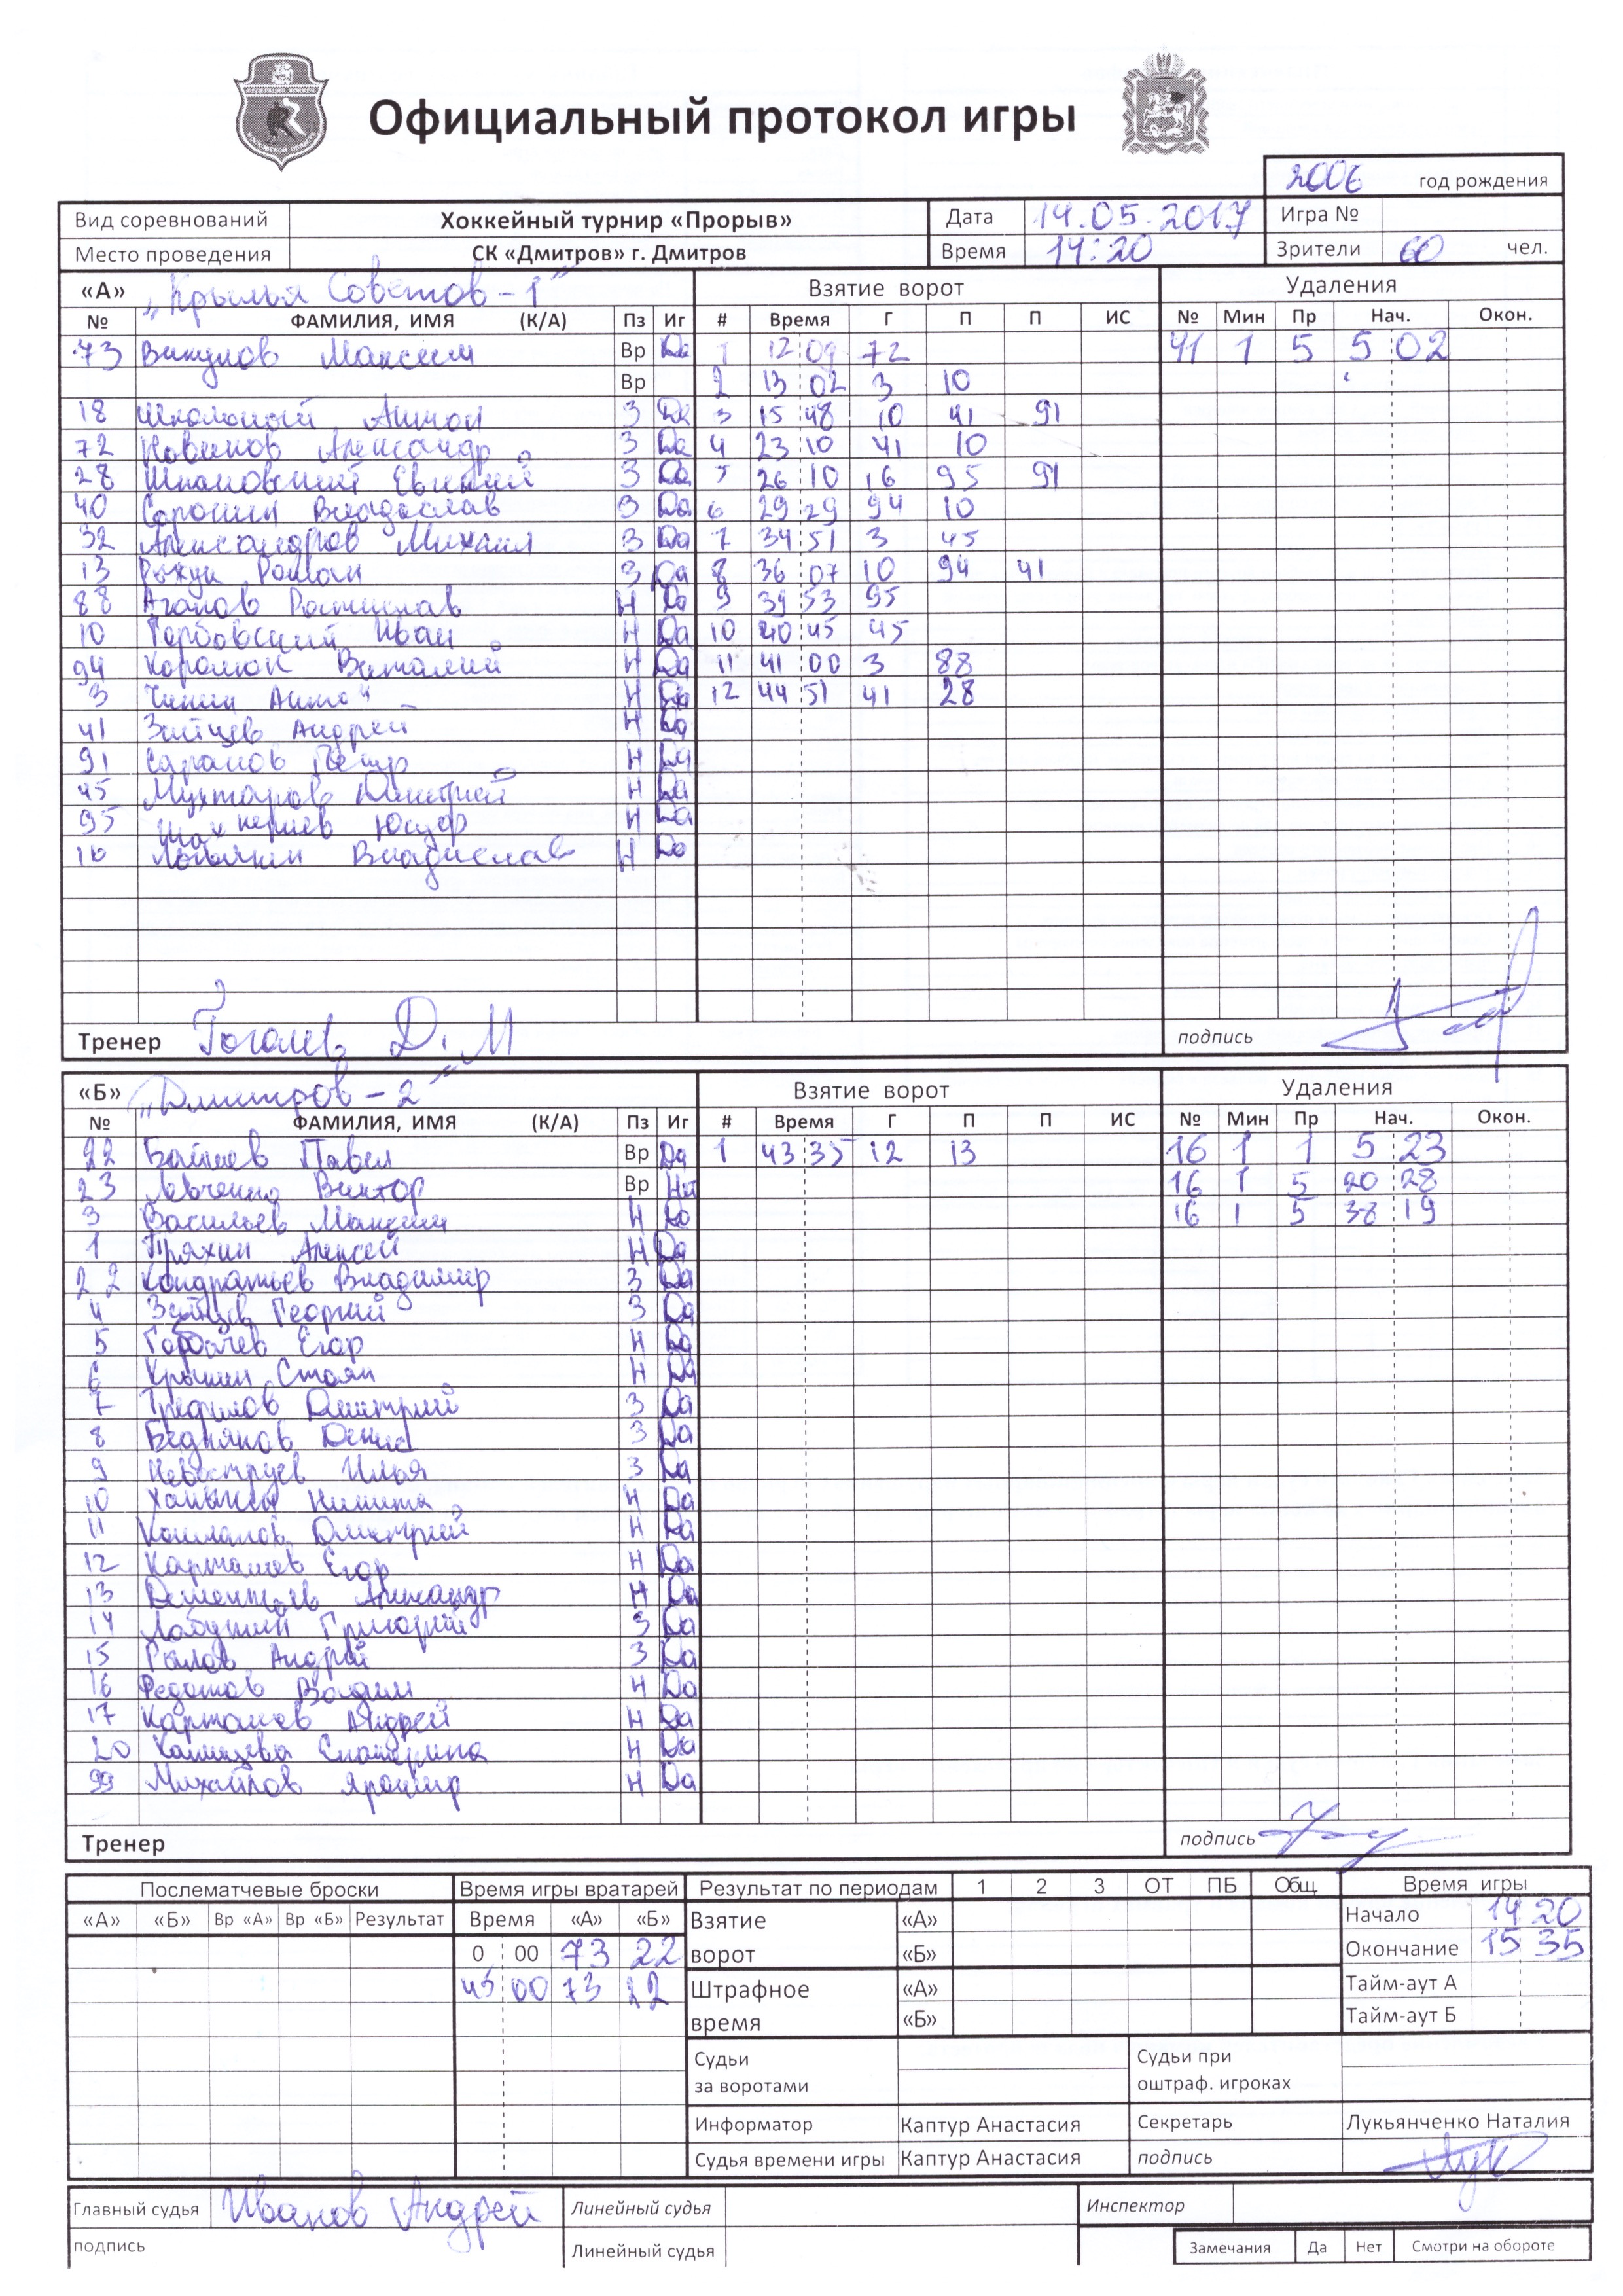 Официальный протокол игры
2006 год рождения
Вид соревнований Хоккейный турнир «Прорыв» Дата 14.05.2017 Игра №
Место проведения СК «Дмитров» г. Дмитров Время 14:20 Зрители 60 чел.
«А» „Крылья Советов-1" Взятие ворот Удаления
№ ФАМИЛИЯ, ИМЯ (К/А) Пз Иг # Время Г П П ИС № Мин Пр Нач. Окон.
73 Викулов Максим Вр Да 1 12 09 72 41 1 5 5 02
Вр 2 13 02 3 10
18 Антон З Да 3 15 48 10 41 91
72 Новиков Александр З Да 4 23 10 41 10
28 Шпаковский Евгений З Да 5 26 10 16 95 91
40 Сорокин Владислав З Да 6 29 29 94 10
32 Александров Михаил З Да 7 34 51 3 45
13 Рыжук Роман З Да 8 36 07 10 94 41
88 Агапов Ростислав Н Да 9 39 53 95
10 Горбовский Иван Н Да 10 40 45 45
94 Королюк Виталий Н Да 11 41 00 3 88
3 Чинин Антон Н Да 12 44 51 41 28
41 Зайцев Андрей Н Да
91 Сарапов Петр Н Да
45 Мухтаров Дмитрий Н Да
95 Юсуф Н Да
16 Владислав Н Да
Тренер Гоголев Д. М подпись
«Б» „Дмитров-2" Взятие ворот Удаления
№ ФАМИЛИЯ, ИМЯ (К/А) Пз Иг # Время Г П П ИС № Мин Пр Нач. Окон.
22 Павел Вр Да 1 43 35 12 13 16 1 1 5 23
23 Левченко Виктор Вр Нет 16 1 5 20 28
3 Васильев Максим Н Да 16 1 5 38 19
1 Пряхин Алексей Н Да
22 Кондратьев Владимир З Да
4 Зайцев Георгий З Да
5 Горбачев Егор Н Да
6 Крынин Стоян Н Да
7 Трефилов Дмитрий З Да
8 Бедняков Денис З Да
9 Невоструев Илья З Да
10 Никита Н Да
11 Дмитрий Н Да
12 Карташев Егор Н Да
13 Дементьев Александр Н Да
14 Лабутин Григорий З Да
15 Рылов Андрей З Да
16 Федотов Вадим Н Да
17 Карташев Андрей Н Да
20 Екатерина Н Да
99 Михайлов Яромир Н Да
Тренер подпись
Послематчевые броски Время игры вратарей Результат по периодам 1 2 3 ОТ ПБ Общ. Время игры
«А» «Б» Вр «А» Вр «Б» Результат Время «А» «Б» Взятие ворот «А» Начало 14 20
0 00 73 22 «Б» Окончание 15 35
45 00 73 22 Штрафное время «А» Тайм-аут А
«Б» Тайм-аут Б
Судьи за воротами Судьи при оштраф. игроках
Информатор Каптур Анастасия Секретарь Лукьянченко Наталия
Судья времени игры Каптур Анастасия подпись
Главный судья Иванов Андрей Линейный судья Инспектор
подпись Линейный судья Замечания Да Нет Смотри на обороте